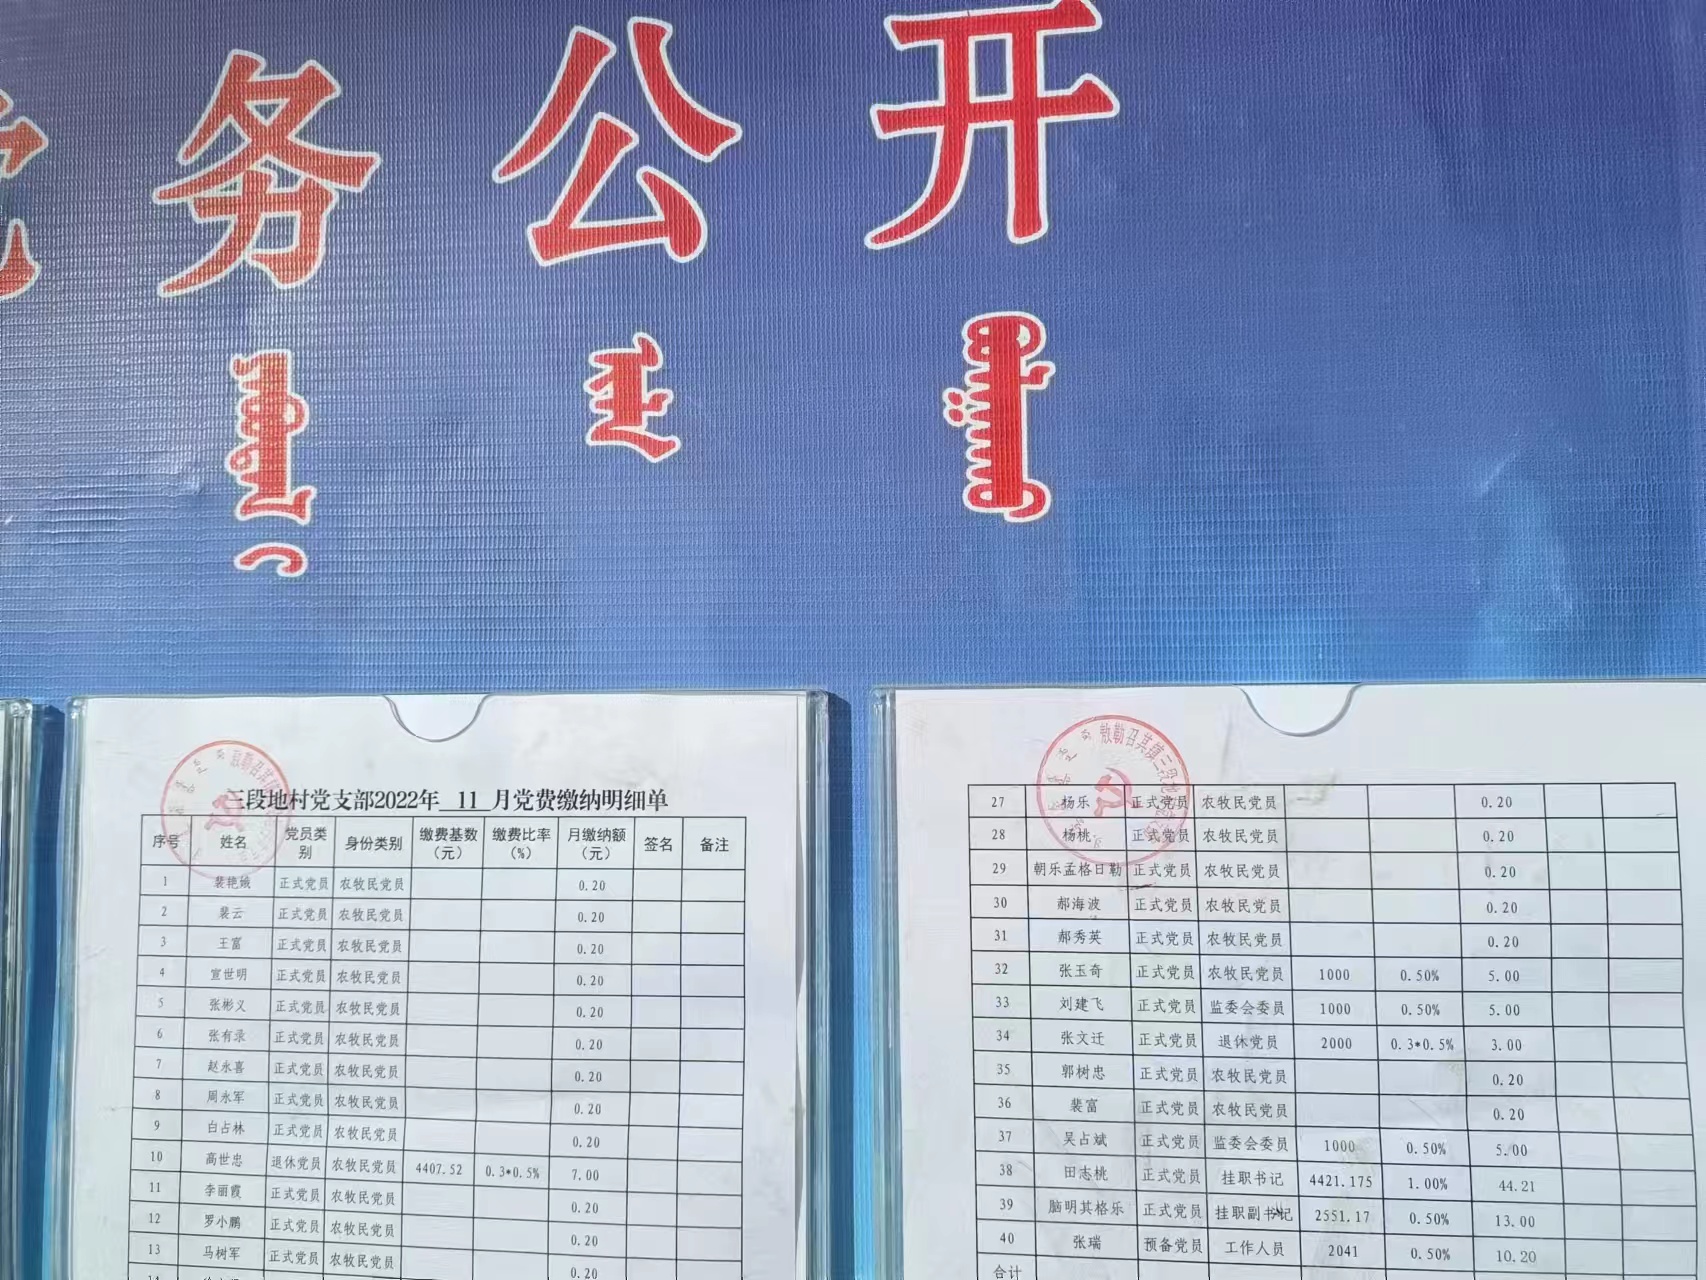 务 公 开
三段地村党支部2022年 11 月党费缴纳明细单
序号 姓名 党员类别 身份类别 缴费基数（元） 缴费比率（%） 月缴纳额（元） 签名 备注
1 裴艳娥 正式党员 农牧民党员 0.20
2 裴云 正式党员 农牧民党员 0.20
3 王富 正式党员 农牧民党员 0.20
4 宣世明 正式党员 农牧民党员 0.20
5 张彬义 正式党员 农牧民党员 0.20
6 张有录 正式党员 农牧民党员 0.20
7 赵永喜 正式党员 农牧民党员 0.20
8 周永军 正式党员 农牧民党员 0.20
9 白占林 正式党员 农牧民党员 0.20
10 高世忠 退休党员 农牧民党员 4407.52 0.3*0.5% 7.00
11 李丽霞 正式党员 农牧民党员 0.20
12 罗小鹏 正式党员 农牧民党员 0.20
13 马树军 正式党员 农牧民党员 0.20
敖勒召其镇三段地
27 杨乐 正式党员 农牧民党员 0.20
28 杨桃 正式党员 农牧民党员 0.20
29 朝乐孟格日勒 正式党员 农牧民党员 0.20
30 郝海波 正式党员 农牧民党员 0.20
31 郝秀英 正式党员 农牧民党员 0.20
32 张玉奇 正式党员 农牧民党员 1000 0.50% 5.00
33 刘建飞 正式党员 监委会委员 1000 0.50% 5.00
34 张文迁 正式党员 退休党员 2000 0.3*0.5% 3.00
35 郭树忠 正式党员 农牧民党员 0.20
36 裴富 正式党员 农牧民党员 0.20
37 吴占斌 正式党员 监委会委员 1000 0.50% 5.00
38 田志桃 正式党员 挂职书记 4421.175 1.00% 44.21
39 脑明其格乐 正式党员 挂职副书记 2551.17 0.50% 13.00
40 张瑞 预备党员 工作人员 2041 0.50% 10.20
合计